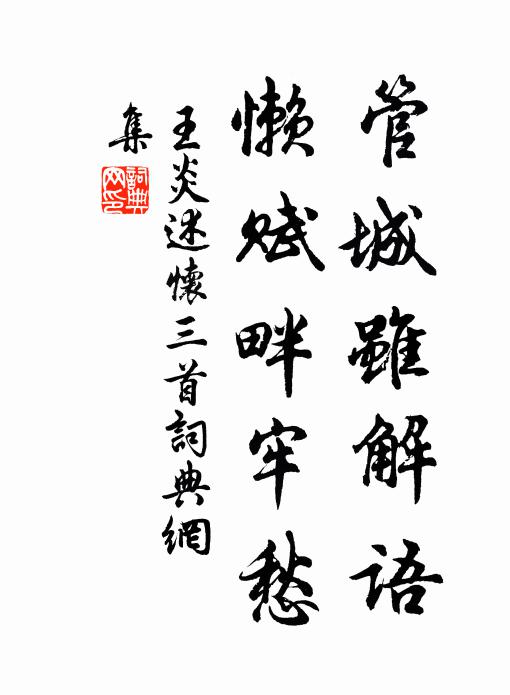 管城雖解语
懶赋畔牢愁
王炎述懷三首詞典網
集
詞典
网印